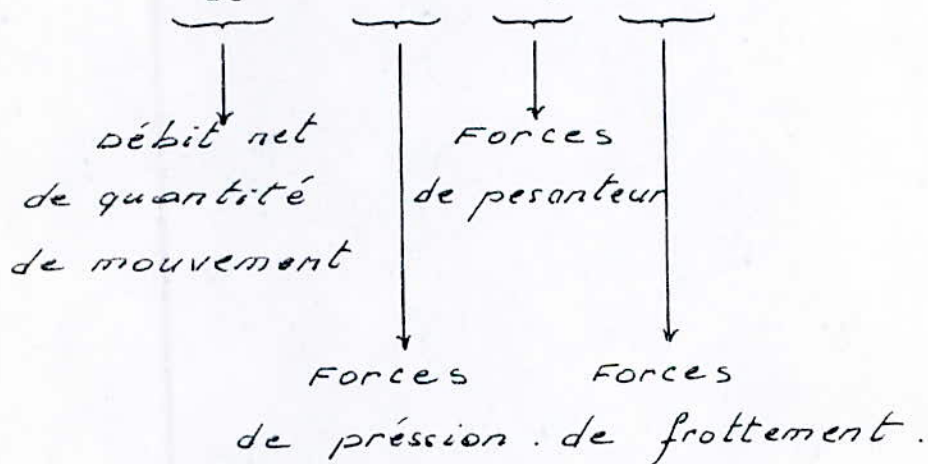 Débit net
de quantité
de mouvement
Forces
de pesanteur
Forces
de préssion.
Forces
de frottement.